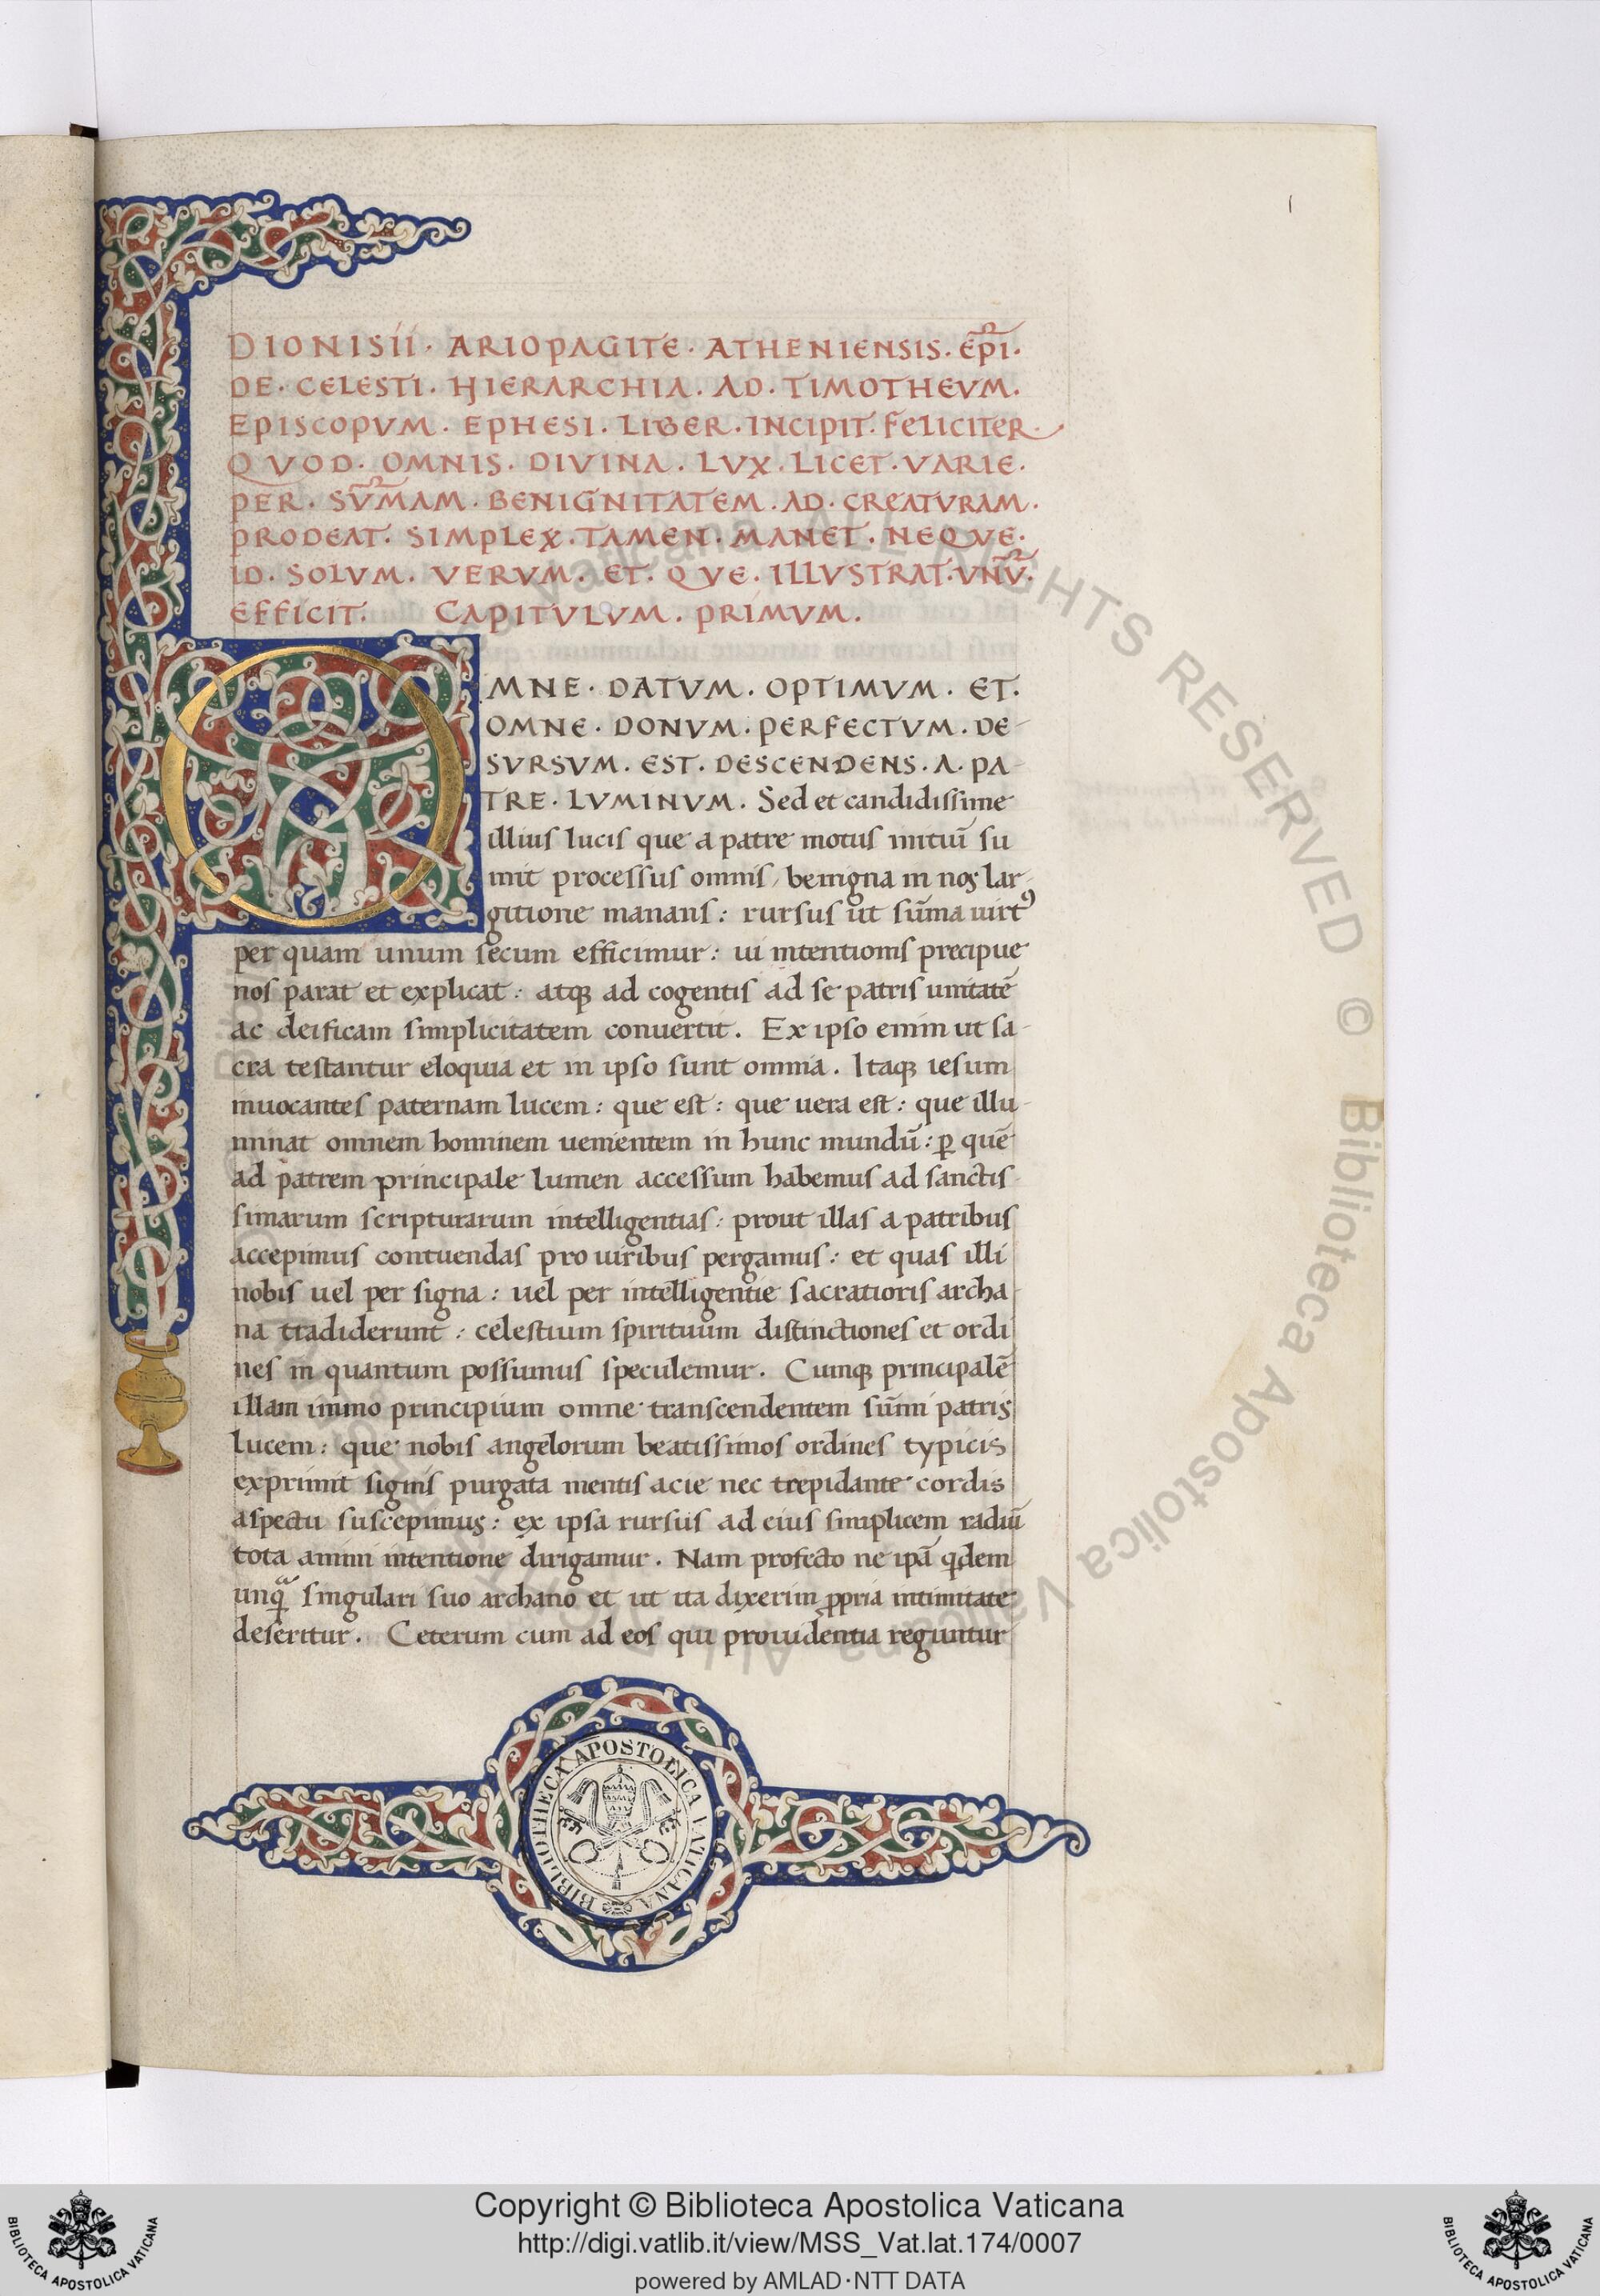 1
DIONISII · ARIOPAGITE · ATHENIENSIS · EP̅I ·
DE · CELESTI · HIERARCHIA · AD · TIMOTHEVM ·
EPISCOPVM · EPHESI · LIBER · INCIPIT · FELICITER ·
QVOD · OMNIS · DIVINA · LVX · LICET · VARIE ·
PER · SV̅MAM · BENIGNITATEM · AD · CREATVRAM ·
PRODEAT · SIMPLEX · TAMEN · MANET · NEQVE ·
ID · SOLVM · VERVM · ET · QVE · ILLVSTRAT · VNV̅ ·
EFFICIT · CAPITVLVM · PRIMVM ·
OMNE · DATVM · OPTIMVM · ET ·
OMNE · DONVM · PERFECTVM · DE-
SVRSVM · EST · DESCENDENS · A · PA-
TRE · LVMINVM · Sed et candidissime
illius lucis que a patre motus initiū su
mit processus omnis / benigna in nos lar-
gitione manans : rursus ut sūma uirtꝰ
per quam unum secum efficimur : ui intentionis precipue
nos parat et explicat : atqꝫ ad cogentis ad se patris unitatē
ac deificam simplicitatem conuertit . Ex ipso enim ut sa-
cra testantur eloquia et in ipso sunt omnia . Itaqꝫ iesum
inuocantes paternam lucem : que est : que uera est : que illu-
minat omnem hominem uenientem in hunc mundū : ꝑ quē
ad patrem principale lumen accessum habemus ad sanctis-
simarum scripturarum intelligentias : prout illas a patribus
accepimus contuendas pro uiribus pergamus : et quas illi
nobis uel per signa : uel per intelligentie sacratioris archa-
na tradiderunt : celestium spirituum distinctiones et ordi
nes in quantum possumus speculemur . Cumqꝫ principalē
illam immo principium omne transcendentem sūmi patris
lucem : que nobis angelorum beatissimos ordines typicis
exprimit signis purgata mentis acie nec trepidante cordis
aspectu suscepimus : ex ipsa rursus ad eius simplicem radiū
tota animi intentione dirigamur . Nam profecto ne ipā qͥdem
unqᷓ singulari suo archano et ut ita dixerim ꝓpria intimitate
deseritur . Ceterum cum ad eos qui prouidentia reguntur
BIBLIOTHECA APOSTOLICA VATICANA
Vaticana ALL RIGHTS RESERVED © Biblioteca Apostolica Vaticana ALL
Copyright © Biblioteca Apostolica Vaticana
http://digi.vatlib.it/view/MSS_Vat.lat.174/0007
powered by AMLAD·NTT DATA
BIBLIOTECA APOSTOLICA VATICANA
BIBLIOTECA APOSTOLICA VATICANA